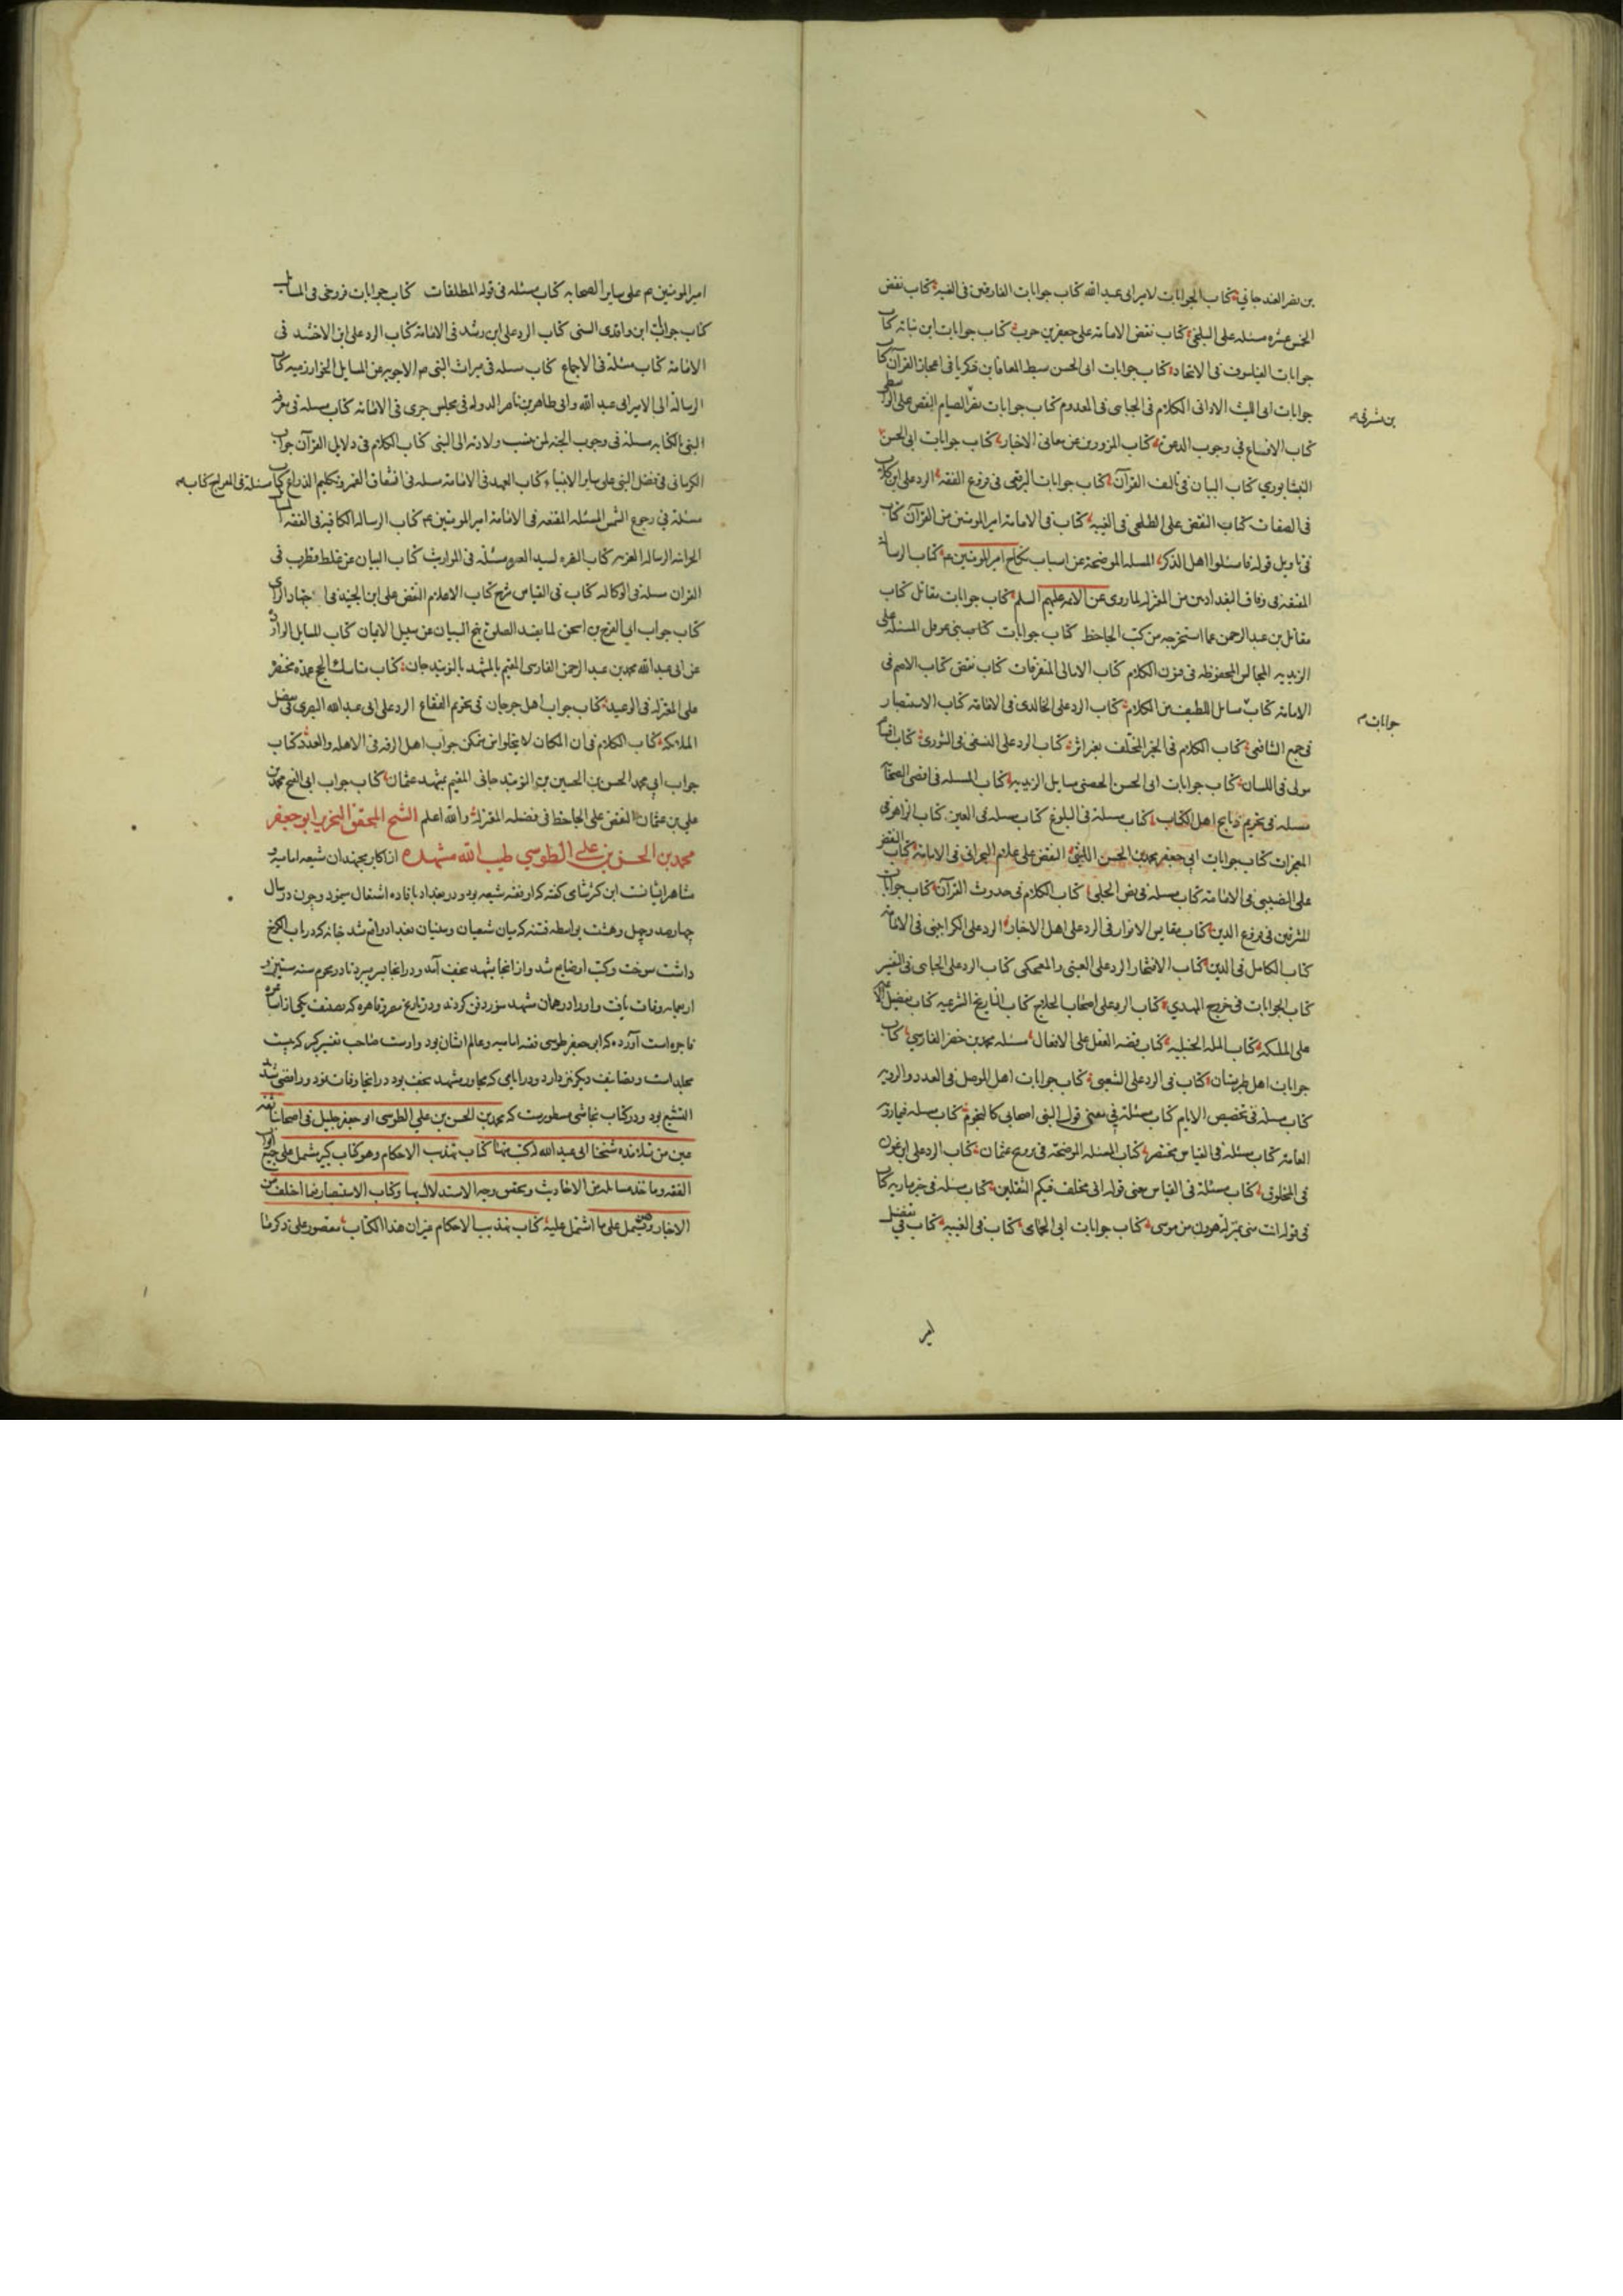 بن نصر العندجاني كتاب الجوابات لامير ابى عبد الله كتاب جوابات الفارقين فى الغيبة كتاب نقض
الخمس عشرة مسئله على البلخي كتاب نقض الامامة على جعفر بن حرب كتاب جوابات ابن نباته كتاب
جوابات الفيلسوف فى الاتحاد كتاب جوابات ابى الحسن سبط المعافا بن زكريا فى اعجاز القرآن كتاب
جوابات ابى الليث الاوانى الكلام فى الجبائى فى المعدوم كتاب جوابات نصر الصيام النقض على الواسطى
بن شرفى
كتاب الاقناع في وجوب الدعوة كتاب المزورين عن معانى الاخبار كتاب جوابات ابى الحسن
النيشابوري كتاب البيان فى تاليف القرآن كتاب جوابات البرقعى فى فروع الفقه الرد على ابن كلاب
فى الصفات كتاب النقض على الطلحى فى الغيبة كتاب فى الامامة امير المومنين من القرآن كتاب
فى تاويل قوله فاسئلوا اهل الذكر المسله الموضحة عن اسباب نكاح امير المومنين كتاب الرسالة
المقنعة فى وفاق البغداديين من المعتزله لما روى عن الائمه عليهم السلم كتاب جوابات مقاتل كتاب
مقاتل بن عبد الرحمن عما استخرجه من كتب الجاحظ كتاب جوابات كتاب بنى عرقل المسئله على
الزيديه المجالس المحفوظه فى فنون الكلام كتاب الامالى المتفرقات كتاب نقض كتاب الاصم فى
الامامة كتاب مسايل اللطيف من الكلام كتاب الرد على الخالدى فى الامامة كتاب الاستبصار
جوابات
فى جمع الشافعي كتاب الكلام فى الخبر المختلف بغير اثر كتاب الرد على النسفى فى الشورى كتاب اقسام
مولى فى اللسان كتاب جوابات ابى الحسن الحصنى مسايل الزيديه كتاب المسله فى اقضى الصحابة
مسله فى تحريم ذبايح اهل الكتاب كتاب مسلة فى البلوغ كتاب مسله فى العين كتاب الزاهر فى
المعجزات كتاب جوابات ابي جعفر محمد بن الحسن الليثي النقض على غلام البحرانى فى الامامة كتاب النقض
على النصيبى فى الامامة كتاب مسله فى نص الجلى كتاب الكلام فى حدوث القرآن كتاب جوابات
المشرقين فى فروع الدين كتاب مقابس الانوار فى الرد على اهل الاخبار الرد على الكرابيسى فى الامامة
كتاب الكامل فى الدين كتاب الافتخار الرد على العتبى والمعمكى كتاب الرد على الجبائى فى التفسير
كتاب الجوابات فى خروج المهدي كتاب الرد على اصحاب الحلاج كتاب التاريخ الشرعيه كتاب تفضيل
على الملكه كتاب المله الحنبليه كتاب قضيه العقل على الافعال مسئله محمد بن خضر الفارسي كتاب
جوابات اهل طبرستان كتاب فى الرد على الشعبى كتاب جوابات اهل الموصل فى العدد والرويه
كتاب مسلة فى تخصيص الايام كتاب مسئلة فى معنى قول النبى اصحابى كالنجوم كتاب مسله فيما روته
العامة كتاب مسئله فى القياس مختصر كتاب المسئله الموضحة فى تزويج عثمان كتاب الرد على ابن عون
فى المخلوق كتاب مسئلة فى القياس حتى قوله انى مخلف فيكم الثقلين كتاب مسئله فى خبر ماريه كتاب
فى قوله انت منى بمنزلة هرون من موسى كتاب جوابات ابى الحمامى كتاب فى الغيبه كتاب فى تفضيل
امير
امير المومنين م على ساير الصحابه كتاب مسئله فى قوله المطلقات كتاب جوابات فى المسايل
كتاب جوابات ابن واقدى السنى كتاب الرد على ابن رشد فى الامامة كتاب الرد على ابن الاخشد فى
الامامة كتاب مسئلة فى الاجماع كتاب مسله فى ميراث النبى ص الاجوبه عن المسايل الخوارزميه كتاب
الرسالة الى الامير ابى عبد الله وابى طاهر بن ناصر الدوله فى مجلس جرى فى الامامة كتاب مسله فى معرفه
النبى بالكتابه مسلة فى وجوب الجنه لمن ينسب ولادته الى النبى كتاب الكلام فى دلايل القرآن جواب
الكرمانى فى فضل النبى على ساير الانبيا كتاب العمد فى الامامة مسله فى انشقاق القمر وتكليم الذراع كتاب مسئلة فى المعراج كتاب
مسئلة في رجوع الشمس المسئله المقنعه فى الامامة امير المومنين كتاب الرساله الكافيه فى الفقه
الحرانيه الرساله العزيه كتاب مسئله فى المواريث كتاب البيان عن غلط قطرب فى
القران مسلة فى الوكاله كتاب فى القياس شرح كتاب الاعلام النقض على ابن الجنيد فى اجتهاد الراى
كتاب جواب ابي الفرج بن اسحق لما يفسد الصلوة نهج البيان عن سبيل الايمان كتاب المسايل الوارده
عن ابى عبد الله محمد بن عبد الرحمن الفارسى المقيم بالمشهد بالنوبندجان كتاب مناسك الحج عمده مختصر
على المعتزله فى الوعيد كتاب جواب اهل جرجان فى تحريم الفقاع الرد على ابى عبد الله البصرى فى تفضيل
الملائكه كتاب الكلام فى ان المكان لا يخلوا من متمكن جواب اهل الرقه فى الاهله والعدد كتاب
جواب ابي محمد الحسن بن الحسين بن النوبندجانى المقيم بمشهد عثمان كتاب جواب ابى الفتح محمد بن
علي بن عثمان النقض على الجاحظ فى فضله المعتزلة والله اعلم الشيخ المحقق النحرير ابو جعفر
محمد بن الحسن بن علي الطوسي طيب الله مشهده از اكابر مجتهدان شيعه اماميه و
مشاهر ايشانست ابن كثير شامى كفته كه او فقيه شيعه بود ودر بغداد بافاده اشتغال مينمود وچون در سال
چهارصد وچهل وهشت بواسطه فتنه كه ميان شيعيان وسنيان بغداد واقع شد خانه كه در باب الكرخ
داشت سوخت وكتب او ضايع شد واز انجا بمشهد نجف آمد ودر انجا بسر ميبرد تا در محرم سنه ستين و
اربعمايه وفات يافت واو را در همان مشهد منور دفن كردند ودر تاريخ مصر وقاهره كه تصنيف يكى از اشاعره
فاجره است آورده كه ابى جعفر طوسى فقيه اماميه وعالم ايشان بود واوست صاحب تفسير كبير كه بيست
مجلد است وتصانيف ديكر نيز دارد ودر ايامى كه مجاور مشهد نجف بود در انجا وفات نمود ورافضى شديد
التشيع بود ودر كتاب نجاشى مسطورست كه محمد بن الحسن بن علي الطوسى ابو جعفر جليل فى اصحابنا ثقه
عين من تلامذه شيخنا ابى عبد الله له كتب منها كتاب تهذيب الاحكام وهو كتاب كبير يشمل على جميع ابواب
الفقه وماخذ مسائله من الاحاديث وتحقيق وجه الاستدلال بها وكتاب الاستبصار فيما اختلف من
الاخبار وهو يشمل على ما اشتمل عليه كتاب تهذيب الاحكام غير ان هذا الكتاب مقصور على ذكر ما